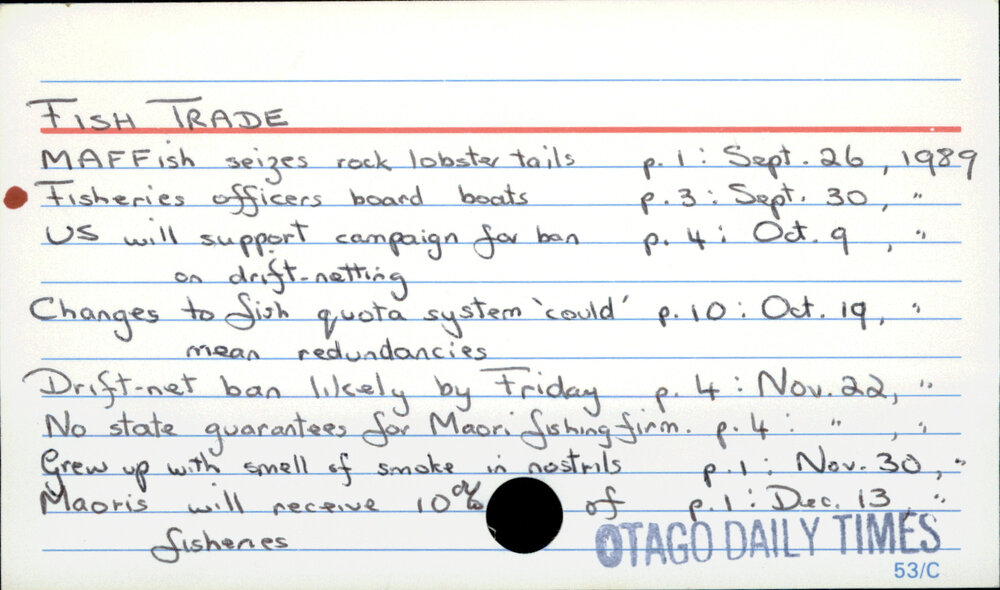 FISH TRADE
MAFFish seizes rock lobster tails p. 1 : Sept. 26, 1989
Fisheries officers board boats p. 3 : Sept. 30, "
US will support campaign for ban p. 4 : Oct. 9, "
on drift-netting
Changes to fish quota system 'could' p. 10 : Oct. 19, "
mean redundancies
Drift-net ban likely by Friday p. 4 : Nov. 22, "
No state guarantees for Maori fishing firm. p. 4 : " , "
Grew up with smell of smoke in nostrils p. 1 : Nov. 30, "
Maoris will receive 10% of p. 1 : Dec. 13, "
fisheries
OTAGO DAILY TIMES
53/C